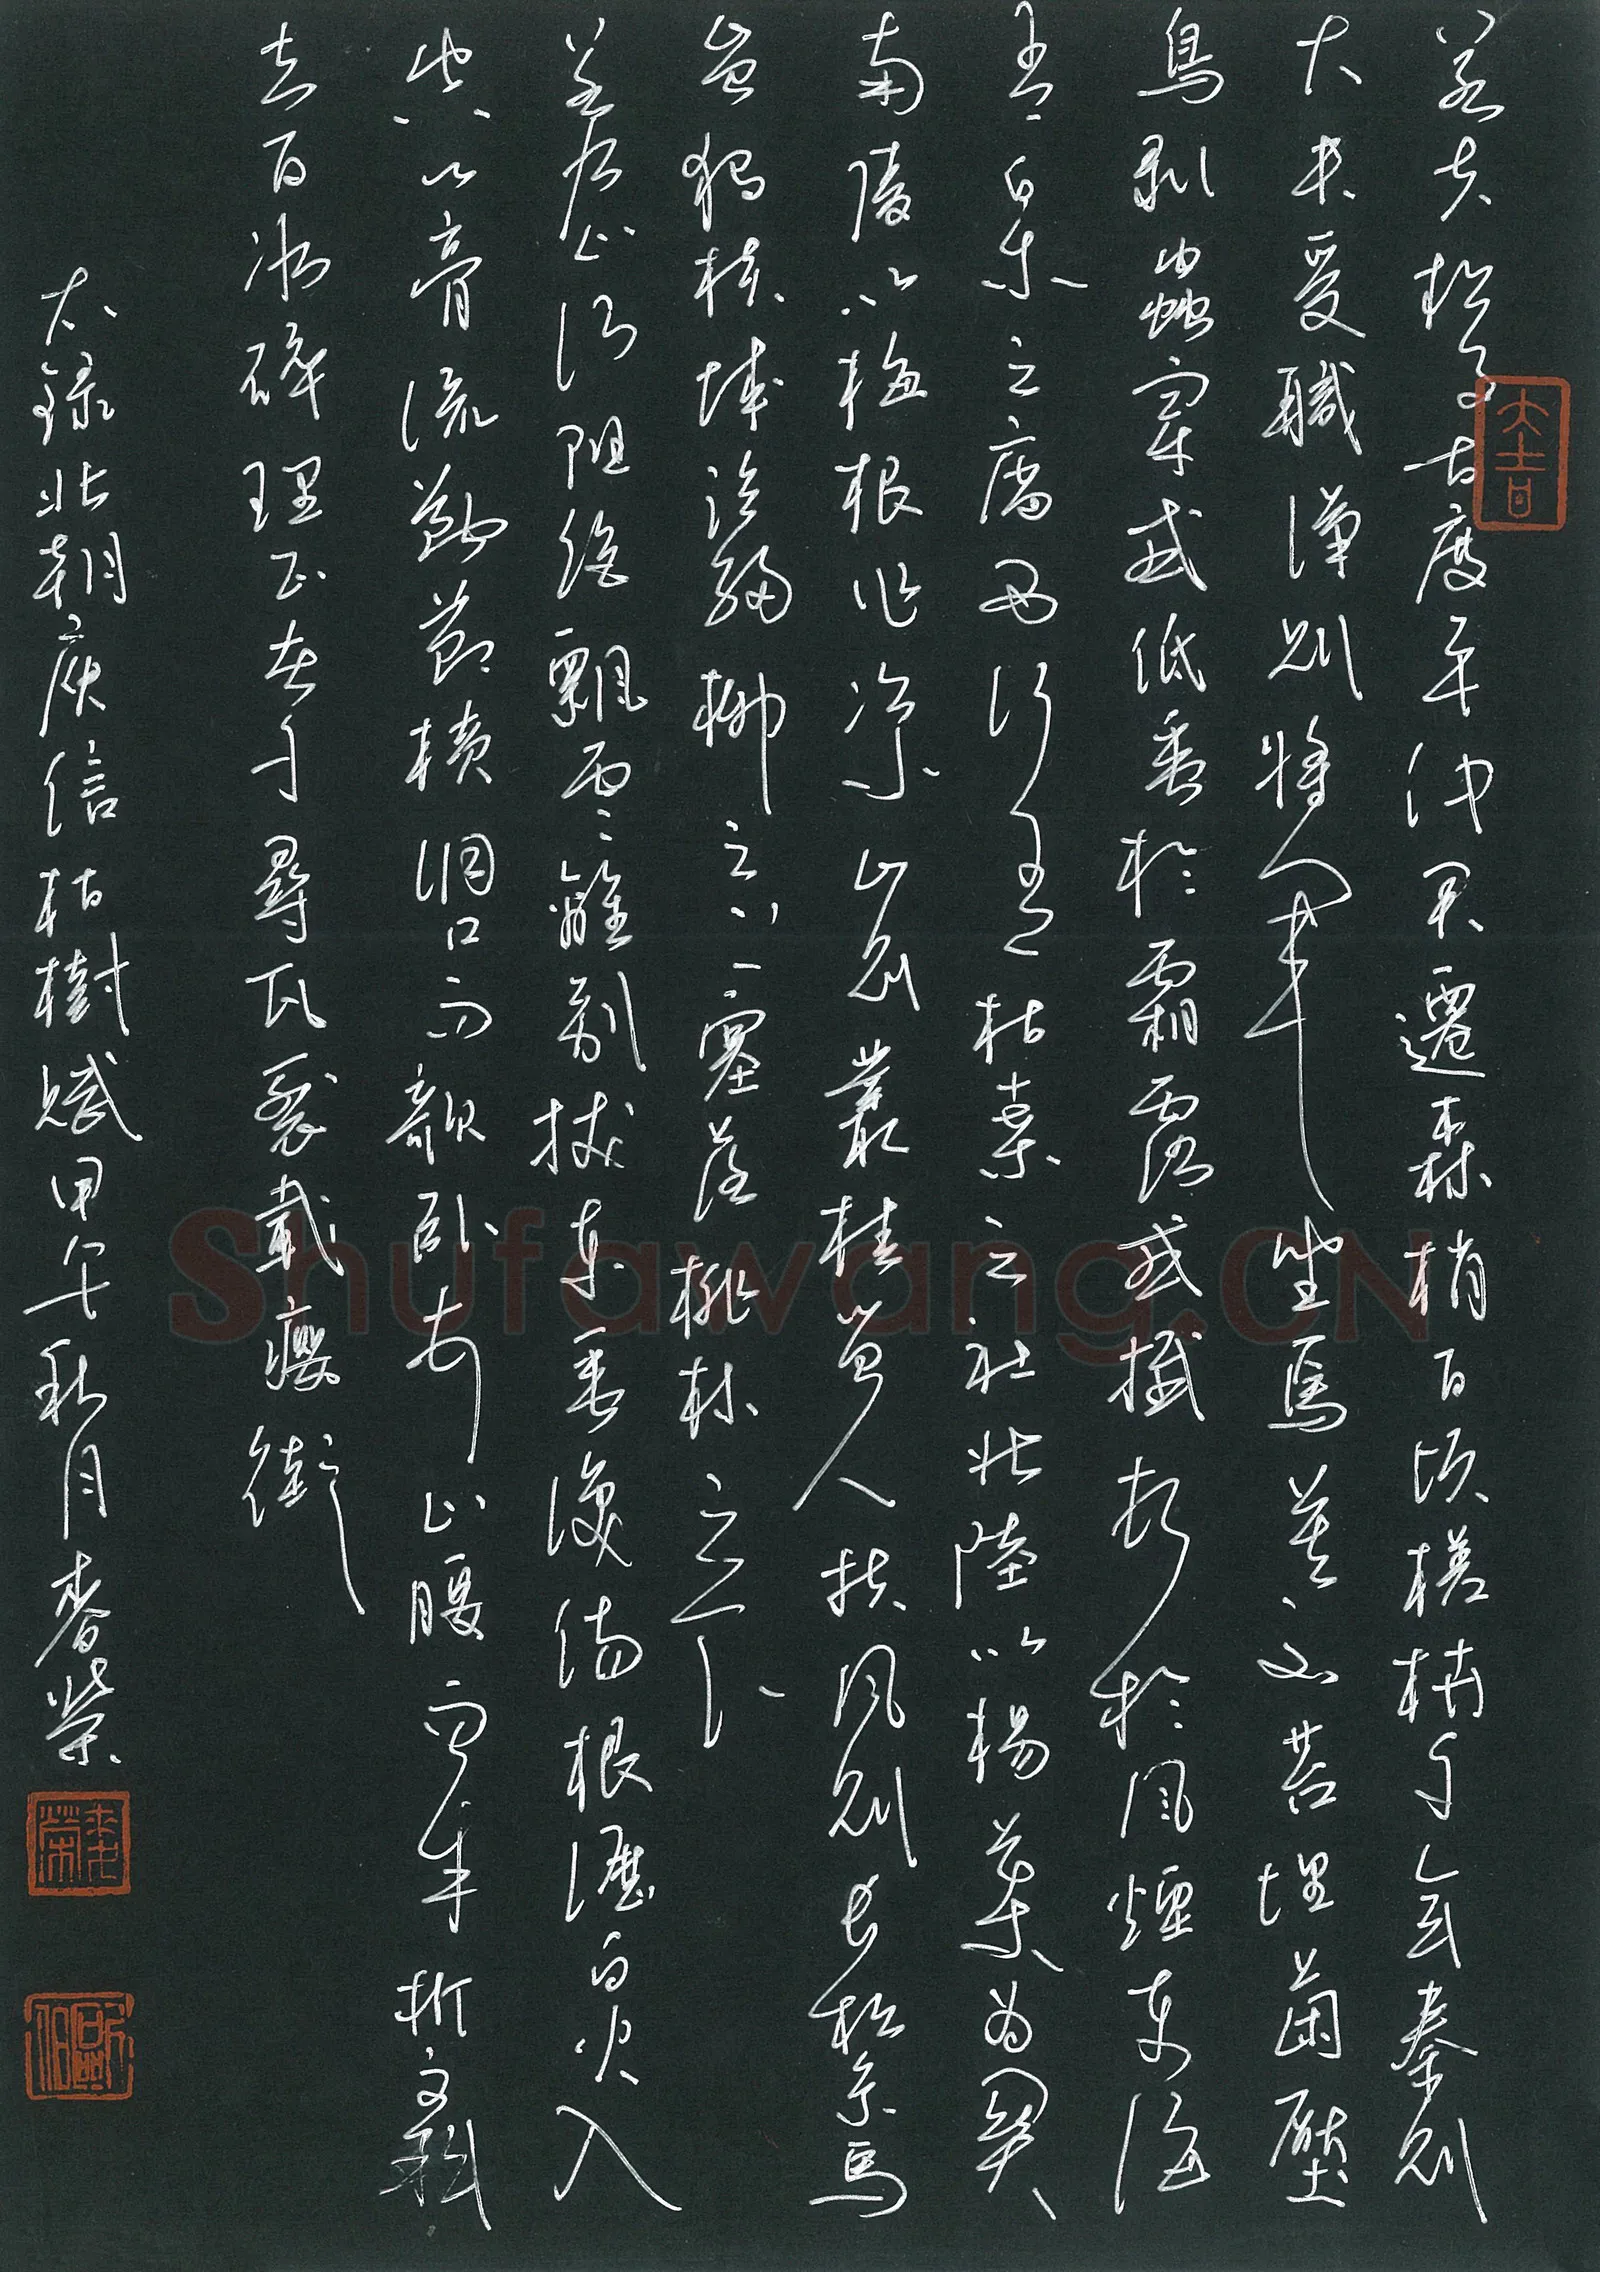 若夫松子古度平仲君遷森梢百頃槎枿千年秦則
大夫受職漢則將軍坐焉莫不苔埋菌壓
鳥剝蟲穿或低垂於霜露或撼頓於風煙東海
有白木之廟西河有枯桑之社北陸以楊葉為關
南陵以梅根作冶小山則叢桂留人扶風則長松繫馬
豈獨城臨細柳之上塞落桃林之下
若乃山河阻絕飄零離別拔本垂淚傷根瀝血火入
空心膏流斷節橫洞口而敧臥頓山腰而半折文斜
者百冰碎理正者千尋瓦裂載癭銜
右錄北朝庾信枯樹賦甲午秋月春榮
大吉
Shufawang.CN